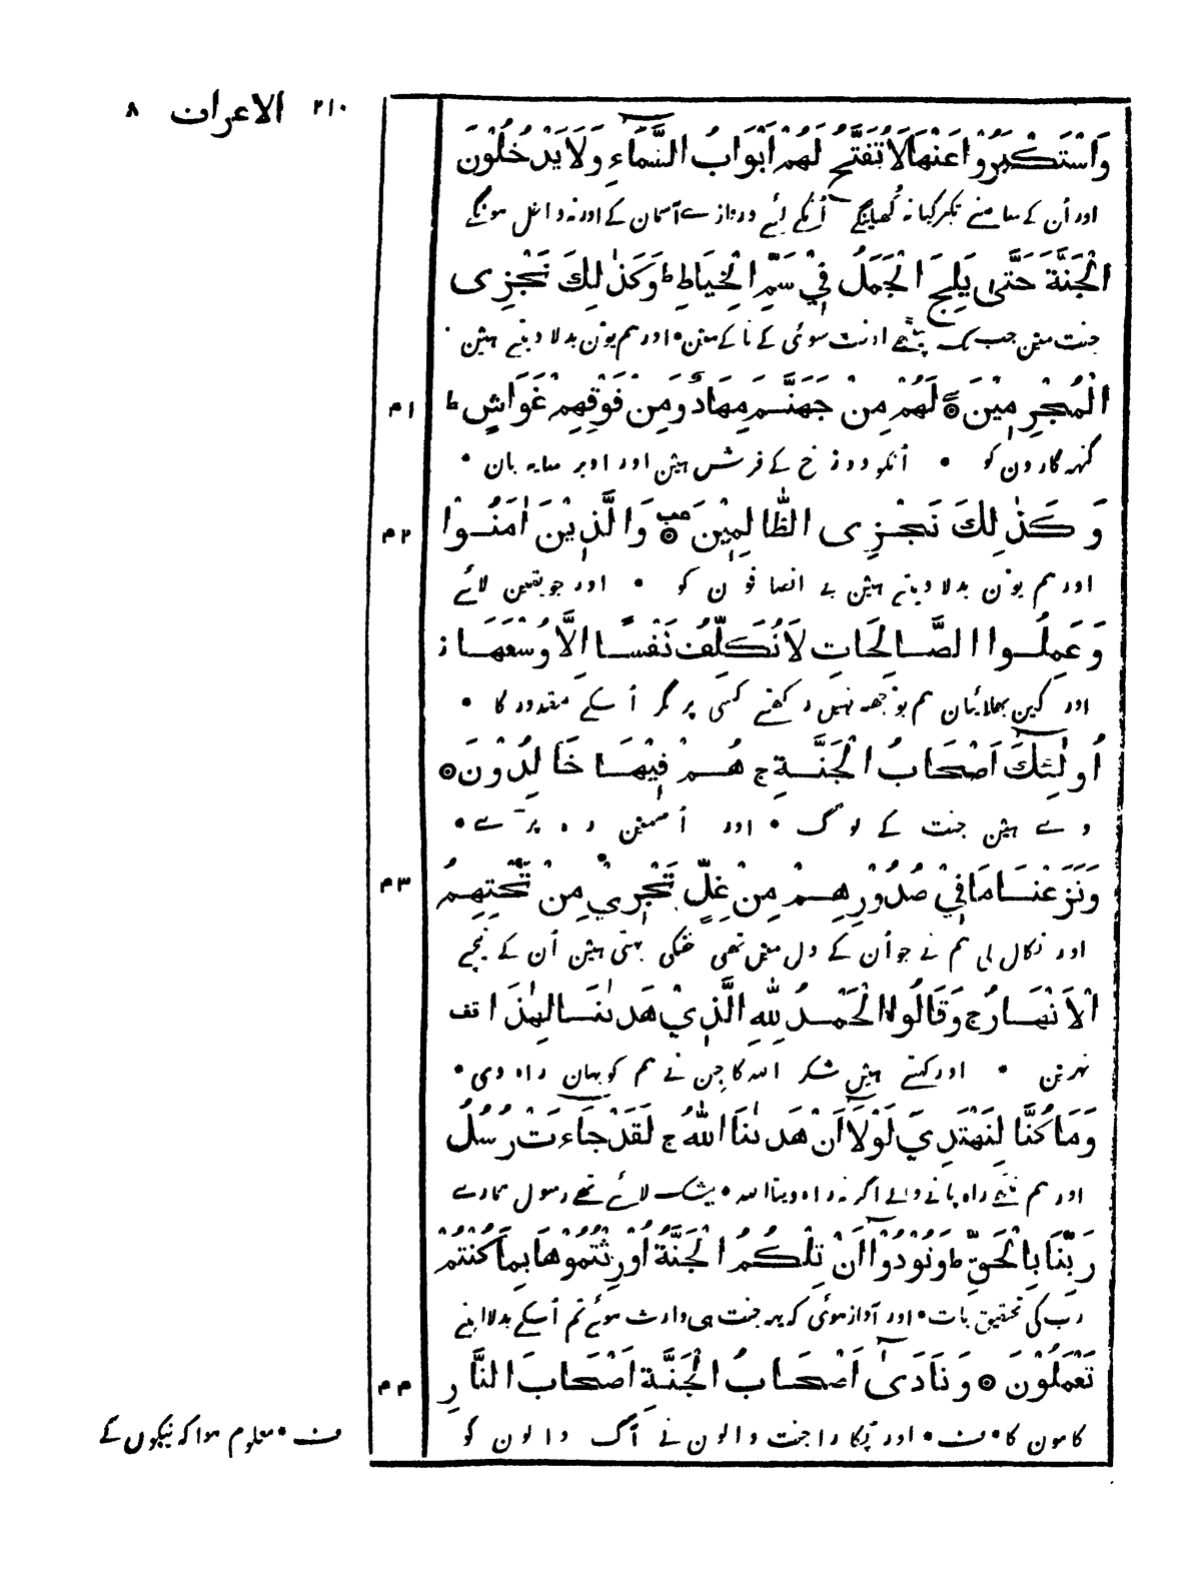 ٢١٠ الاعراف ٨
وَاسْتَكْبَرُوْا عَنْهَا لَا تُفَتَّحُ لَهُمْ اَبْوَابُ السَّمَآءِ وَلَا يَدْخُلُوْنَ
اور اُن کے سامنے تکبر کیا نہ کُھلینگے اُنکے لئے دروازے آسمان کے اور نہ داخل ہونگے
الْجَنَّةَ حَتّٰى يَلِجَ الْجَمَلُ فِيْ سَمِّ الْخِيَاطِ ط وَكَذٰلِكَ نَجْزِى
جنت مین جب تک پیٹھے اونٹ سوئی کے ناکے مین • اور ہم یون بدلا دیتے ہین
الْمُجْرِمِيْنَ ◎ لَهُمْ مِنْ جَهَنَّمَ مِهَادٌ وَّمِنْ فَوْقِهِمْ غَوَاشٍ ط ١م
گنہگارون کو • اُنکو دوزخ کے فرش ہین اور اوپر سایہ بان •
وَكَذٰلِكَ نَجْزِى الظَّالِمِيْنَ ◎ وَالَّذِيْنَ اٰمَنُوْا ٢م
اور ہم یون بدلا دیتے ہین بے انصافون کو • اور جو یقین لائے
وَعَمِلُوا الصَّالِحَاتِ لَا نُكَلِّفُ نَفْسًا اِلَّا وُسْعَهَا ز
اور کین بھلائیان ہم بوجھ نہیں رکھتے کسی پر مگر اُسکے مقدور کا •
اُولٰئِكَ اَصْحَابُ الْجَنَّةِ ج هُمْ فِيْهَا خَالِدُوْنَ ◎
وے ہین جنت کے لوگ • اور اُسمین رہ پڑے •
وَنَزَعْنَا مَا فِيْ صُدُوْرِهِمْ مِنْ غِلٍّ تَجْرِيْ مِنْ تَحْتِهِمُ ٣م
اور نکال لی ہم نے جو اُن کے دل مین تھی خفگی بہتی ہین اُن کے نیچے
الْاَنْهَارُ ج وَقَالُوا الْحَمْدُ لِلّٰهِ الَّذِيْ هَدٰىنَا لِهٰذَا قف
نہرین • اور کہتے ہین شکر اللہ کا جن نے ہم کو یہان راہ دی •
وَمَا كُنَّا لِنَهْتَدِيَ لَوْلَا اَنْ هَدٰىنَا اللّٰهُ ج لَقَدْ جَاءَتْ رُسُلُ
اور ہم نتھے راہ پانے والے اگر نہ راہ دیتا اللہ • بیشک لائے تھے رسول ہمارے
رَبِّنَا بِالْحَقِّ ط وَنُوْدُوْآ اَنْ تِلْكُمُ الْجَنَّةُ اُوْرِثْتُمُوْهَا بِمَا كُنْتُمْ
رب کی تحقیق بات • اور آواز ہوئی کہ یہہ جنت ہی وارث ہوئے تم اُسکے بدلا اپنے
تَعْمَلُوْنَ ◎ وَنَادَىٓ اَصْحَابُ الْجَنَّةِ اَصْحَابَ النَّارِ مم
کامون کا • ف • اور پکارا جنت والون نے آگ والون کو
ف • معلوم ہوا کہ نیکوں کے